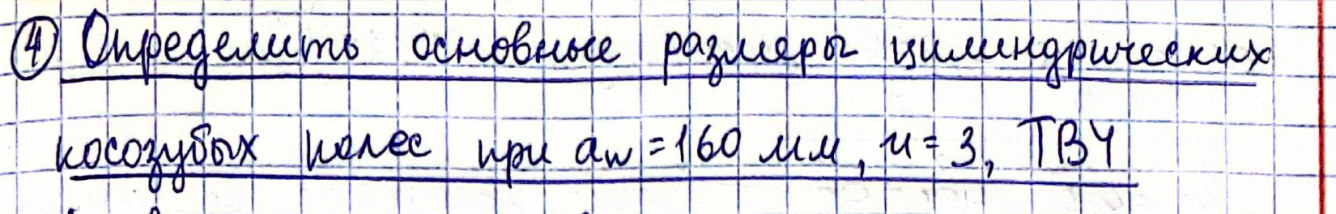 ④ Определить основные размеры цилиндрических
косозубых колес при aw = 160 мм, u = 3, ТВЧ